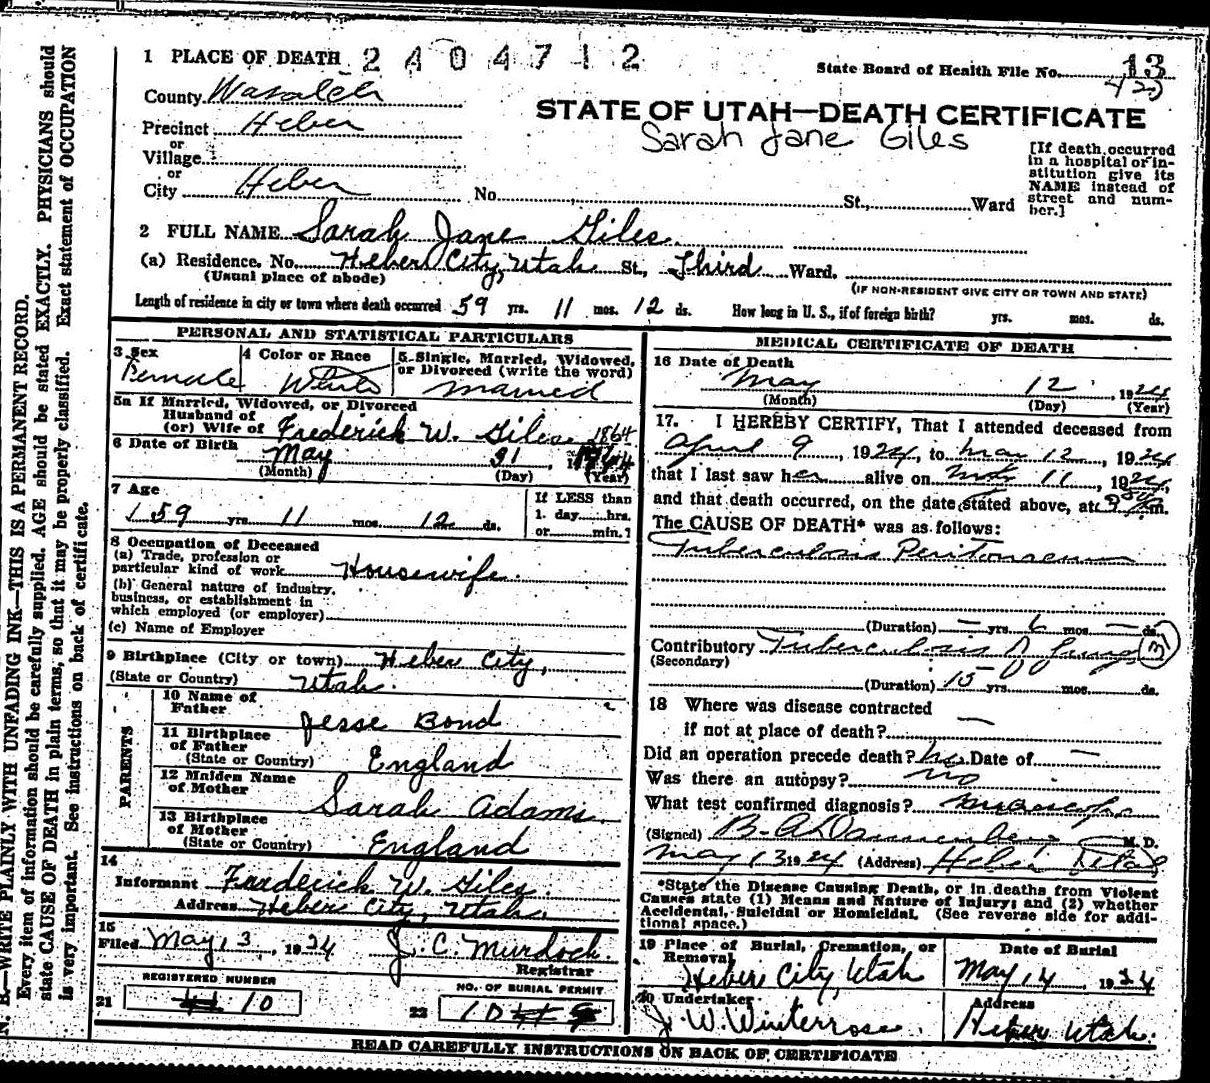 N. B.—WRITE PLAINLY WITH UNFADING INK—THIS IS A PERMANENT RECORD.
Every item of information should be carefully supplied. AGE should be stated EXACTLY. PHYSICIANS should
state CAUSE OF DEATH in plain terms, so that it may be properly classified. Exact statement of OCCUPATION
is very important. See instructions on back of certificate.
1 PLACE OF DEATH 2404712
State Board of Health File No. 13
County Wasatch
STATE OF UTAH—DEATH CERTIFICATE
Sarah Jane Giles
Precinct Heber
or
Village
or
City Heber No. St., Ward
[If death occurred
in a hospital or in-
stitution give its
NAME instead of
street and num-
ber.]
2 FULL NAME Sarah Jane Giles
(a) Residence. No. Heber City, Utah St., Third Ward.
(Usual place of abode)
(IF NON-RESIDENT GIVE CITY OR TOWN AND STATE)
Length of residence in city or town where death occurred 59 yrs. 11 mos. 12 ds. How long in U. S., if of foreign birth? yrs. mos. ds.
PERSONAL AND STATISTICAL PARTICULARS
3 Sex
Female
4 Color or Race
White
5 Single, Married, Widowed,
or Divorced (write the word)
married
5a If Married, Widowed, or Divorced
Husband of
(or) Wife of Frederick W. Giles
1864
6 Date of Birth May 31
(Month) (Day) (Year)
7 Age
59 yrs. 11 mos. 12 ds.
If LESS than
1 day hrs.
or min.?
8 Occupation of Deceased
(a) Trade, profession or
particular kind of work Housewife.
(b) General nature of industry,
business, or establishment in
which employed (or employer)
(c) Name of Employer
9 Birthplace (City or town) Heber City,
(State or Country) Utah.
PARENTS
10 Name of
Father Jesse Bond
11 Birthplace
of Father
(State or Country) England
12 Maiden Name
of Mother Sarah Adams
13 Birthplace
of Mother
(State or Country) England
14
Informant Frederick W. Giles.
Address Heber City, Utah.
15
Filed May 13, 1924 J. C. Murdock.
Registrar
REGISTERED NUMBER
21 10
NO. OF BURIAL PERMIT
22 10
MEDICAL CERTIFICATE OF DEATH
16 Date of Death
May 12, 1924
(Month) (Day) (Year)
17. I HEREBY CERTIFY, That I attended deceased from
April 9, 1924, to May 12, 1924
that I last saw her alive on May 11, 1924,
and that death occurred, on the date stated above, at m.
The CAUSE OF DEATH* was as follows:
Tuberculosis Peritonaeum
(Duration) — yrs. mos. — ds.
Contributory Tuberculosis of Lungs 31
(Secondary)
(Duration) 15 yrs. mos. ds.
18 Where was disease contracted
if not at place of death? —
Did an operation precede death? no Date of —
Was there an autopsy? no
What test confirmed diagnosis? microscopic
(Signed) M. D.
May 13 1924 (Address) Heber Utah
*State the Disease Causing Death, or in deaths from Violent
Causes state (1) Means and Nature of Injury; and (2) whether
Accidental, Suicidal or Homicidal. (See reverse side for addi-
tional space.)
19 Place of Burial, Cremation, or
Removal
Heber City, Utah
Date of Burial
May 14, 1924
20 Undertaker
J. W. Winterrose.
Address
Heber Utah.
READ CAREFULLY INSTRUCTIONS ON BACK OF CERTIFICATE